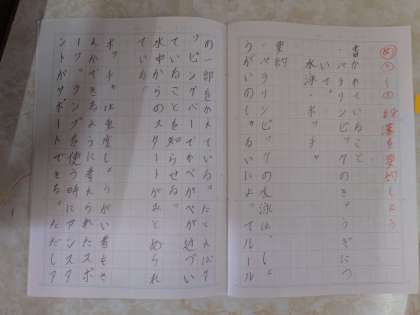 の段落を要約しよう
書かれていること
・パラリンピックのきょうぎにつ
いて。
水泳　ボッチャ
要約
・パラリンピックの水泳は、しょ
うがいのしゅるいによってルール
の一部をかえている。たとえばタ
ッピングバーでかべが近づい
ていることを知らせる。
水中からのスタートがみとめられ
ている。
ボッチャは重度しょうがい者もさ
んかできるように考えられたスポ
ーツ。ランプを使う時にアシスタ
ントがサポートできる。ただしア